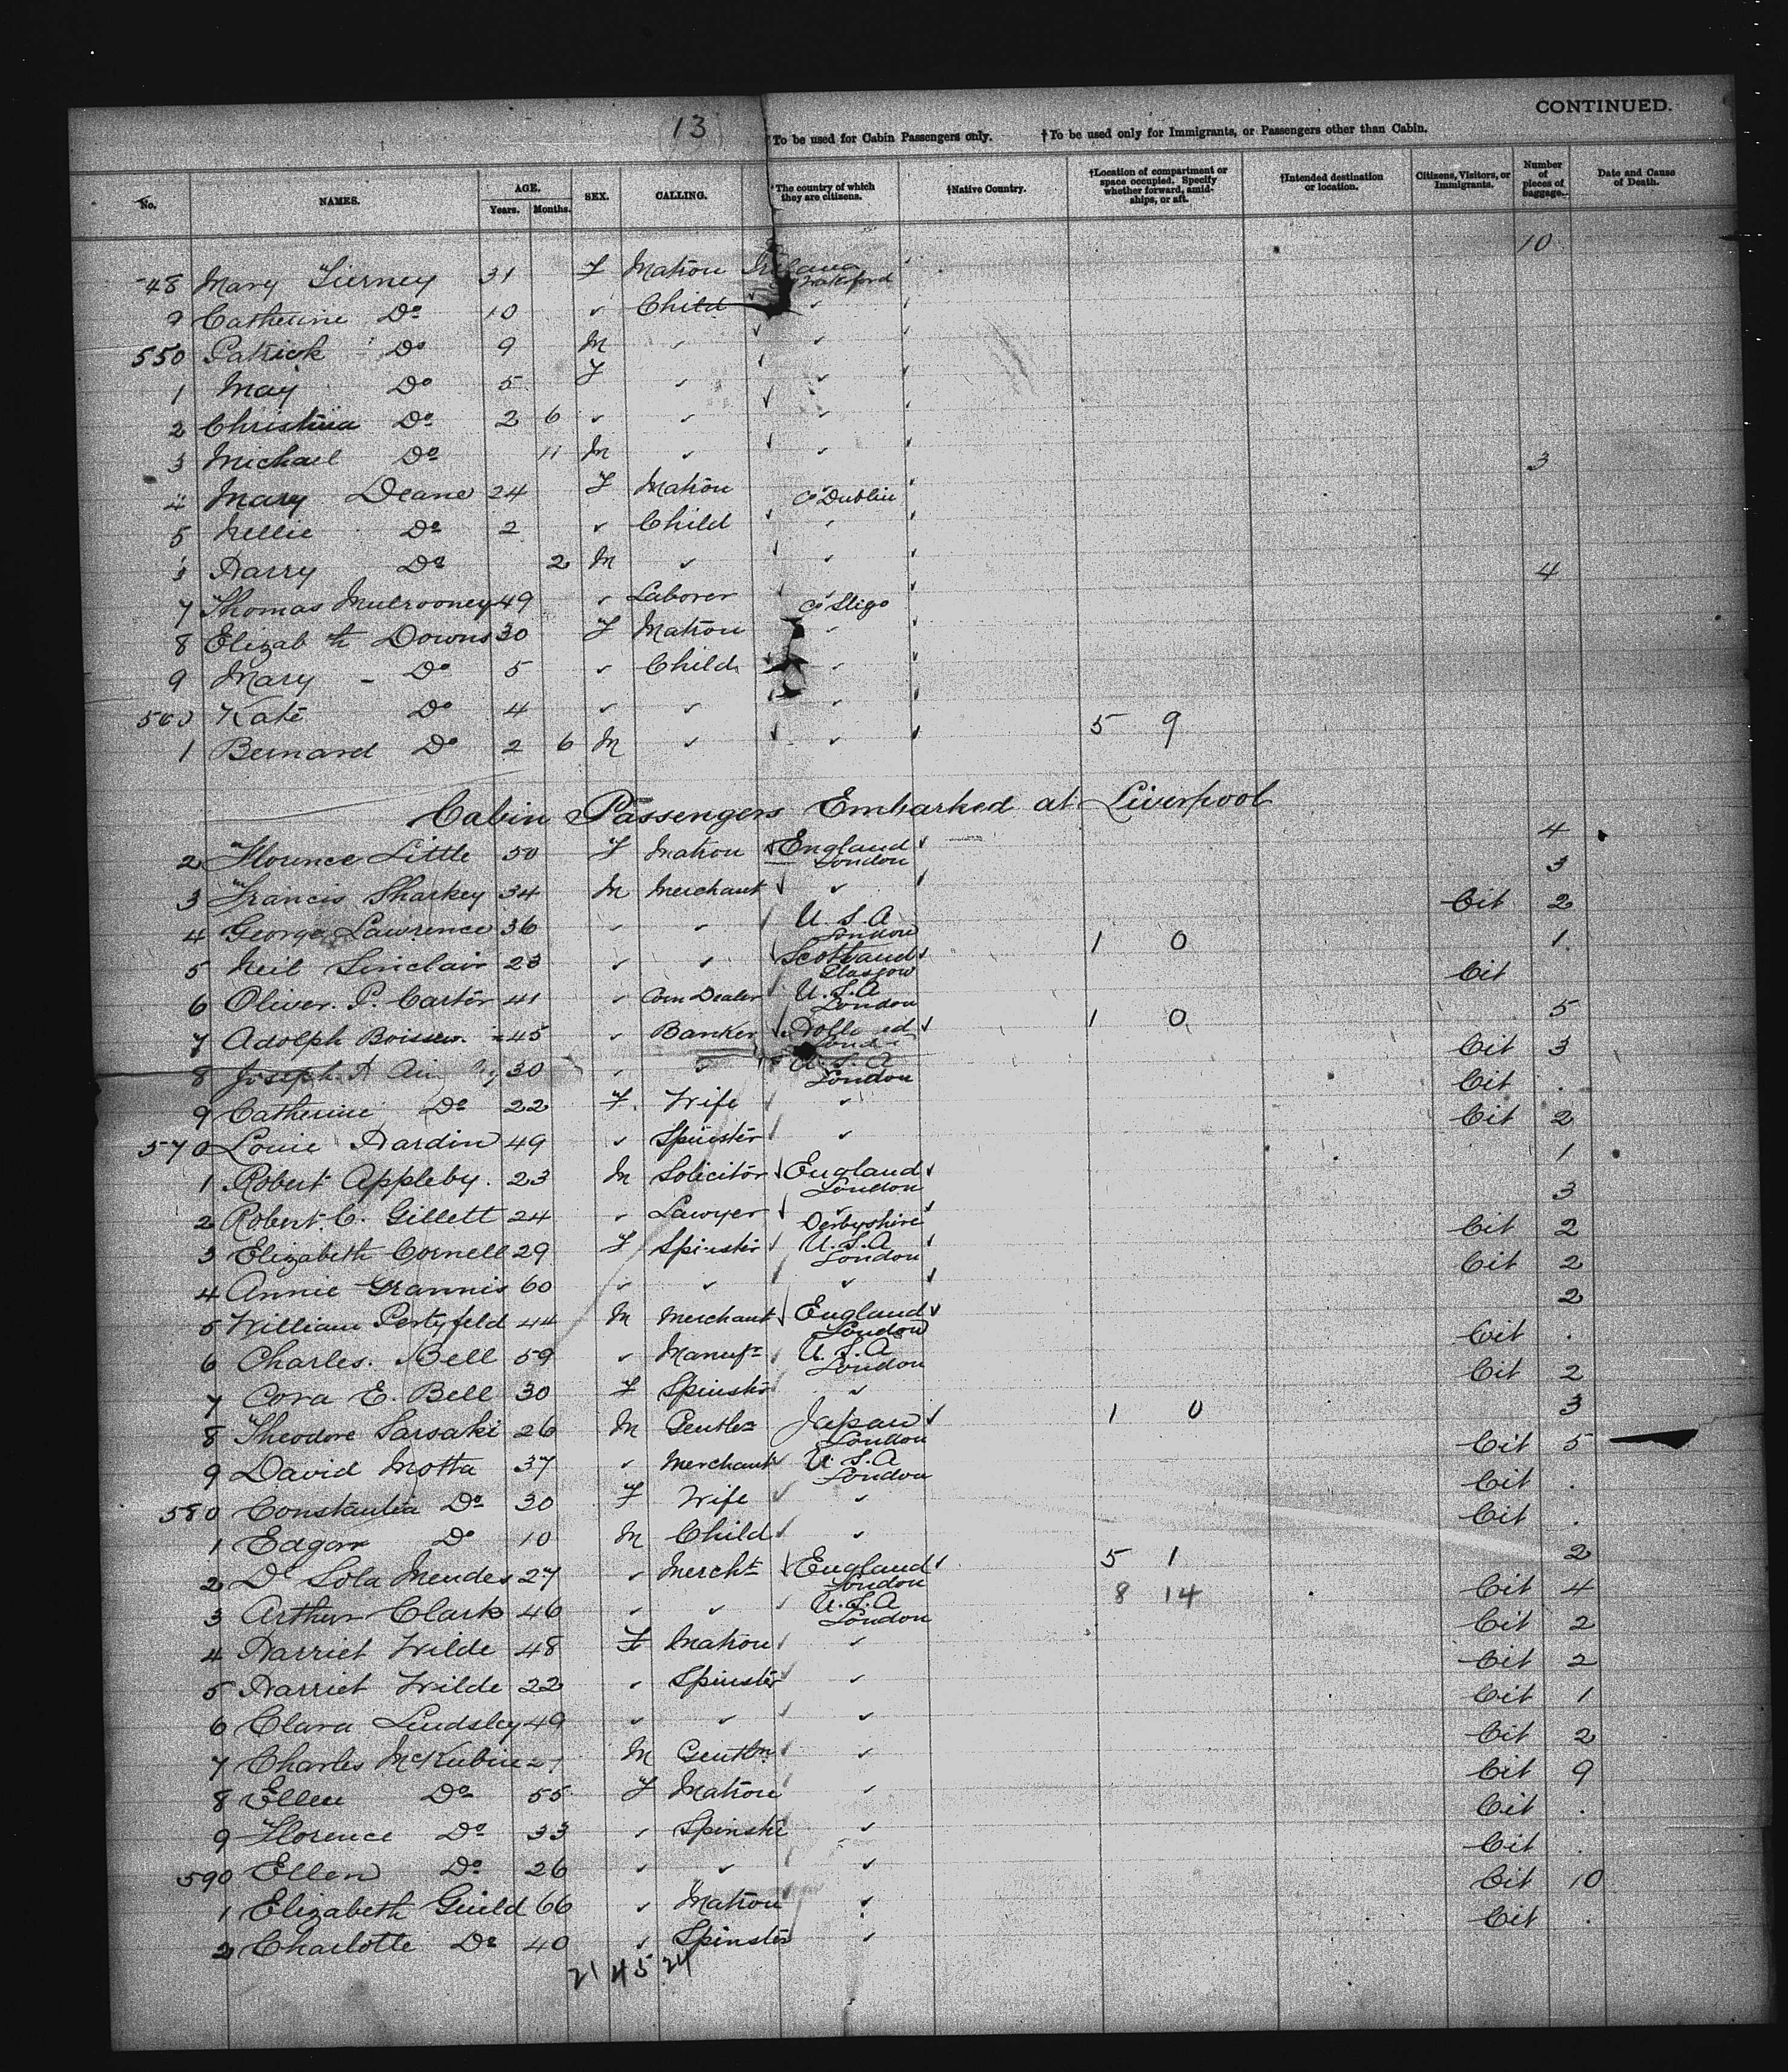 13
CONTINUED.
*To be used for Cabin Passengers only. †To be used only for Immigrants, or Passengers other than Cabin.
No. NAMES. AGE. Years. Months. SEX. CALLING. *The country of which they are citizens. †Native Country. †Location of compartment or space occupied. Specify whether forward, amidships, or aft. †Intended destination or location. Citizens, Visitors, or Immigrants. Number of pieces of baggage. Date and Cause of Death.
10
48 Mary Tierney 31 F Matron Waterford
9 Catherine Do 10 ✓ Child ✓
550 Patrick Do 9 M ✓ ✓
1 May Do 5 F ✓ ✓
2 Christina Do 2 6 ✓ ✓ ✓
3 Michael Do 11 M ✓ ✓
4 Mary Deane 24 F Matron Co Dublin 3
5 Nellie Do 2 ✓ Child ✓
Harry Do 2 M ✓ ✓
7 Thomas Mulrooney 49 ✓ Laborer Co Sligo 4
8 Elizabth Downs 30 F Matron ✓
9 Mary Do 5 ✓ Child ✓
560 Kate Do 4 ✓ ✓ ✓
1 Bernard Do 2 6 M ✓ ✓ 5 9
Cabin Passengers Embarked at Liverpool
2 Florence Little 50 F Matron England London 4
3 Francis Sharkey 34 M Merchant ✓ 3
4 George Lawrence 36 ✓ ✓ U.S.A London Cit 2
5 Neil Sinclair 23 ✓ ✓ Scotland Glasgow 1 0 1
6 Oliver. P. Carter 41 ✓ Corn Dealer U.S.A London Cit
7 Adolph 45 ✓ Banker 1 0 5
8 Joseph A 30 ✓ ✓ U.S.A London Cit 3
9 Catherine Do 22 F. Wife ✓ Cit .
570 Louie Hardin 49 ✓ Spinster ✓ Cit 2
1 Robert Appleby. 23 M Solicitor England London 1
2 Robert. C. Gillett 24 ✓ Lawyer ✓ Derbyshire 3
3 Elizabeth Cornell 29 F Spinster U.S.A London Cit 2
4 Annie Grannis 60 ✓ ✓ ✓ Cit 2
5 William 44 M Merchant England London 2
6 Charles. Bell 59 ✓ Manufr U.S.A London Cit .
7 Cora E. Bell 30 F Spinster ✓ Cit 2
8 Theodore Sarsaki 26 M Gentln Japan London 1 0 3
9 David Motta 37 ✓ Merchant U.S.A London Cit 5
580 Constantia Do 30 F Wife ✓ Cit .
1 Edgar Do 10 M Child ✓ Cit .
2 D Sola Mendes 27 ✓ Mercht England London 5 1 2
3 Arthur Clark 46 ✓ ✓ U.S.A London 8 14 Cit 4
4 Harriet Wilde 48 F Matron ✓ Cit 2
5 Harriet Wilde 22 ✓ Spinster ✓ Cit 2
6 Clara Lindsley 49 ✓ ✓ ✓ Cit 1
7 Charles McKubin M Gentln ✓ Cit 2
8 Ellen Do 55 F Matron ✓ Cit 9
9 Florence Do 33 ✓ Spinster ✓ Cit .
590 Ellen Do 26 ✓ ✓ ✓ Cit .
1 Elizabeth Guild 66 ✓ Matron ✓ Cit 10
2 Charlotte Do 40 ✓ Spinster ✓ Cit .
21 45 24